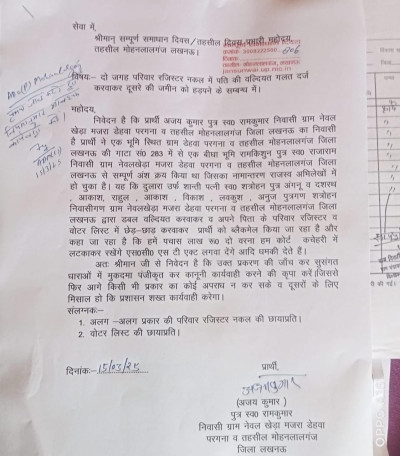 सेवा में,
श्रीमान् सम्पूर्ण समाधान दिवस/तहसील दिवस प्रभारी महोदय,
तहसील मोहनलालगंज लखनऊ।
606
jansunwai.up.nic.in
विषय– दो जगह परिवार रजिस्टर नकल में पति की वल्दियत गलत दर्ज
करवाकर दूसरे की जमीन को हड़पने के सम्बन्ध में।
महोदय,
निवेदन है कि प्रार्थी अजय कुमार पुत्र स्व0 रामकुमार निवासी ग्राम नेवल
खेड़ा मजरा डेहवा परगना व तहसील मोहनलालगंज जिला लखनऊ का निवासी
है प्रार्थी ने एक भूमि स्थित ग्राम डेहवा परगना व तहसील मोहनलालगंज जिला
लखनऊ की गाटा सं0 283 में से एक बीघा भूमि रामकिशुन पुत्र स्व0 राजाराम
निवासी ग्राम नेवलखेड़ा मजरा डेहवा परगना व तहसील मोहनलालगंज जिला
लखनऊ से सम्पूर्ण अंश क्रय किया था जिसका नामान्तरण राजस्व अभिलेखों में
हो चुका है। यह कि दुलारा उर्फ शान्ती पत्नी स्व0 शत्रोहन पुत्र अंगनू व दशरथ
, आकाश, राहुल , आकाश , विकाश , लवकुश , अनुज पुत्रगण शत्रोहन
निवासीगण ग्राम नेवलखेड़ा मजरा डेहवा परगना व तहसील मोहनलालगंज जिला
लखनऊ द्वारा डबल वल्दियत करवाकर व अपने पिता के परिवार रजिस्टर व
वोटर लिस्ट में छेड़-छाड़ करवाकर प्रार्थी को ब्लैकमेल किया जा रहा है और
कहा जा रहा है कि हमें पचास लाख रू0 दो वरना हम कोर्ट कचेहरी में
लटकाकर रखेंगे एस0सी0 एस टी एक्ट लगवा देंगे आदि धमकी देते हैं।
अतः श्रीमान जी से निवेदन है कि उक्त प्रकरण की जाँच कर सुसंगत
धाराओं में मुकदमा पंजीकृत कर कानूनी कार्यवाही करने की कृपा करें।जिससे
फिर आगे किसी भी प्रकार का कोई अपराध न कर सके व दूसरों के लिए
मिसाल हो कि प्रशासन शख्त कार्यवाही करेगा।
संलग्नकः–
1. अलग –अलग प्रकार की परिवार रजिस्टर नकल की छायाप्रति।
2. वोटर लिस्ट की छायाप्रति।
दिनांकः– 15/03/25
प्रार्थी,
अजय कुमार
(अजय कुमार )
पुत्र स्व0 रामकुमार
निवासी ग्राम नेवल खेड़ा मजरा डेहवा
परगना व तहसील मोहनलालगंज
जिला लखनऊ